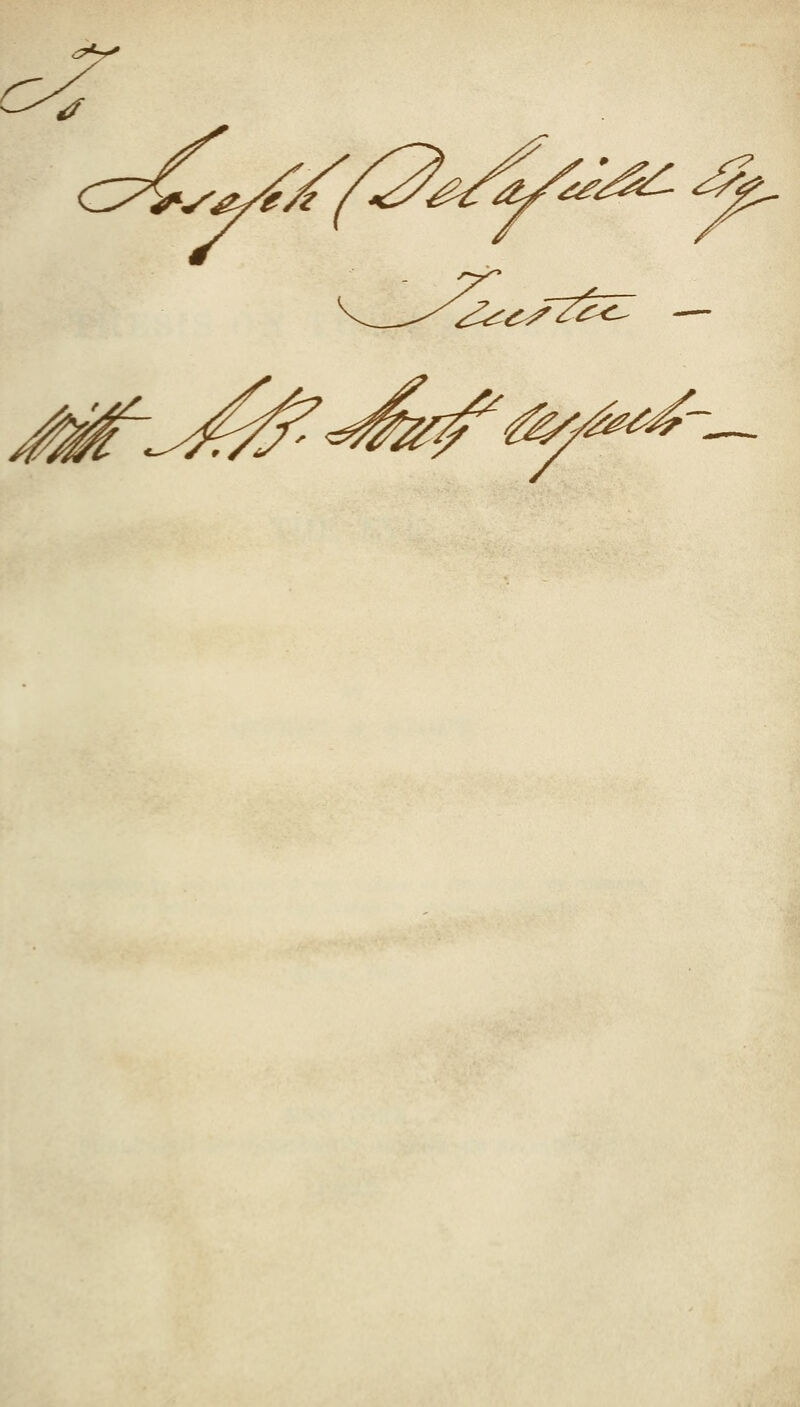 To
Joseph Delafield Esq
Trustee —
With A.B. Stout's respects —